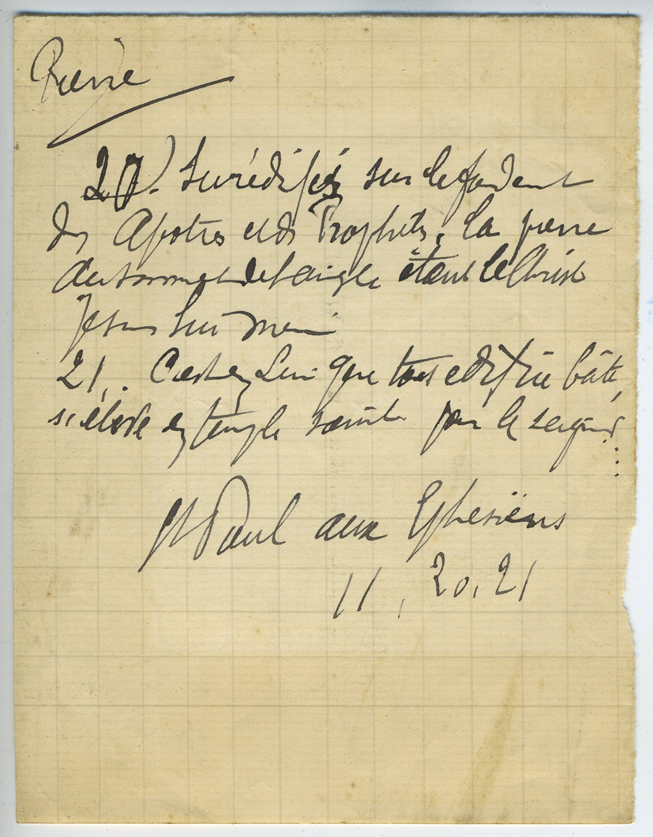 Pierre
20). Surédifiés sur le fondement
des Apotres et des Prophètes, la pierre
du sommet de l'angle étant le Christ
Jesus lui meme
21. C'est en Lui que tout edifice bâti,
s'élève en temple saint pour le seigneur...
St Paul aux Ephesiens
11, 20, 21